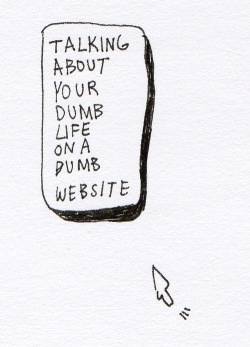 TALKING
ABOUT
YOUR
DUMB
LIFE
ON A
DUMB
WEBSITE